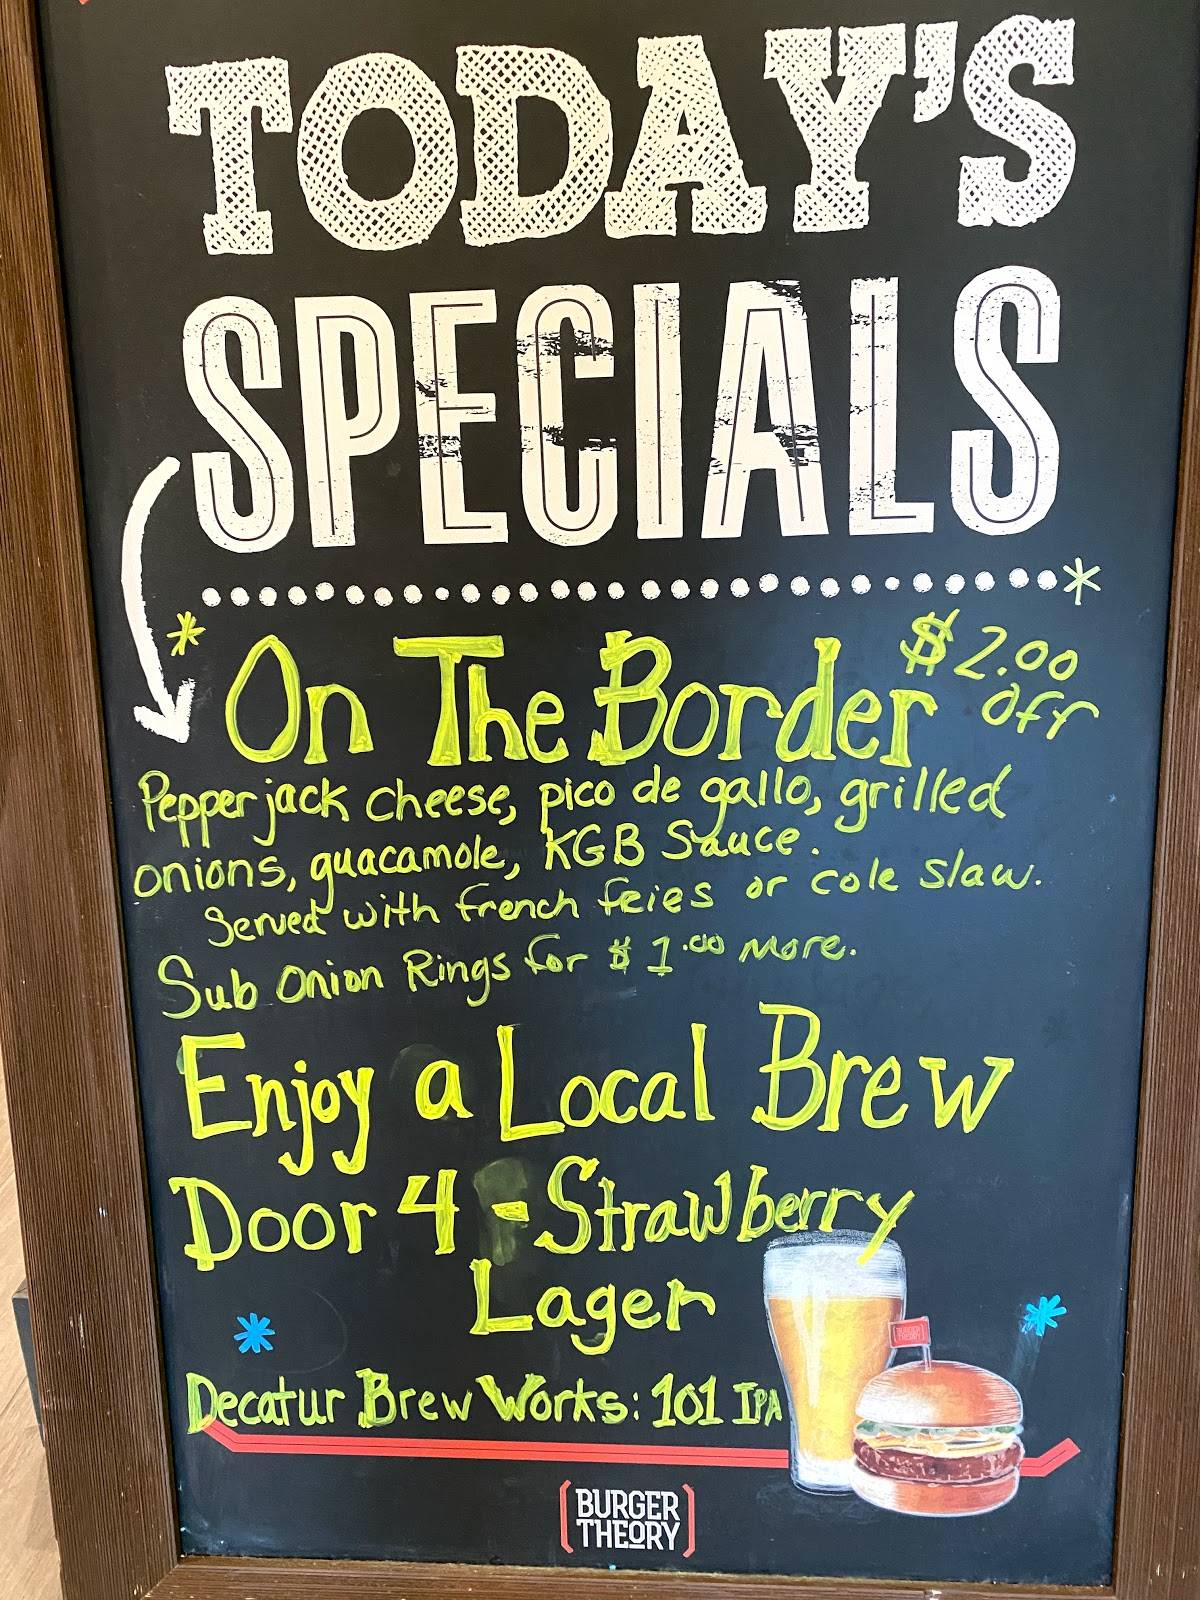 TODAY'S
SPECIALS
On The Border $2.00 off
Pepper jack cheese, pico de gallo, grilled
onions, guacamole, KGB Sauce.
Served with french feies or cole slaw.
Sub Onion Rings for $1.00 more.
Enjoy a Local Brew
Door 4 - Strawberry
Lager
Decatur Brew Works: 101 IPA
BURGER THEORY
BURGER
THEORY